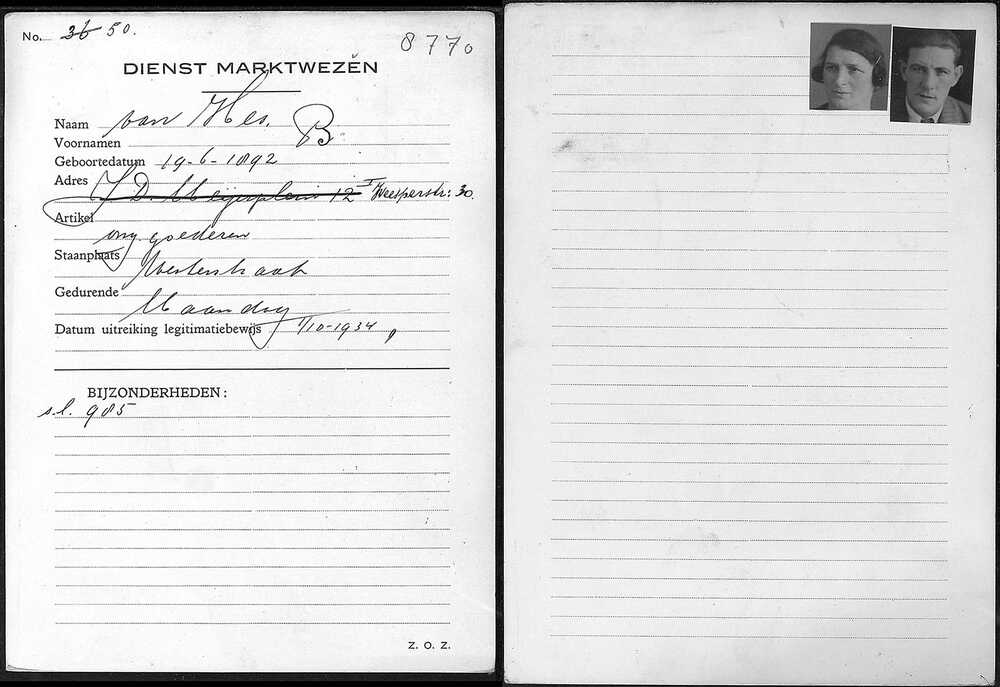 No. 36 50.
8770
DIENST MARKTWEZEN
Naam van Hes.
Voornamen B
Geboortedatum 19-6-1892
Adres J D Meijerplein 12 I Weesperstr: 30.
Artikel
ong goederen
Staanplaats
Westerstraat
Gedurende
Maandag
Datum uitreiking legitimatiebewijs 1/10-1934
BIJZONDERHEDEN:
s.l. 985
Z. O. Z.